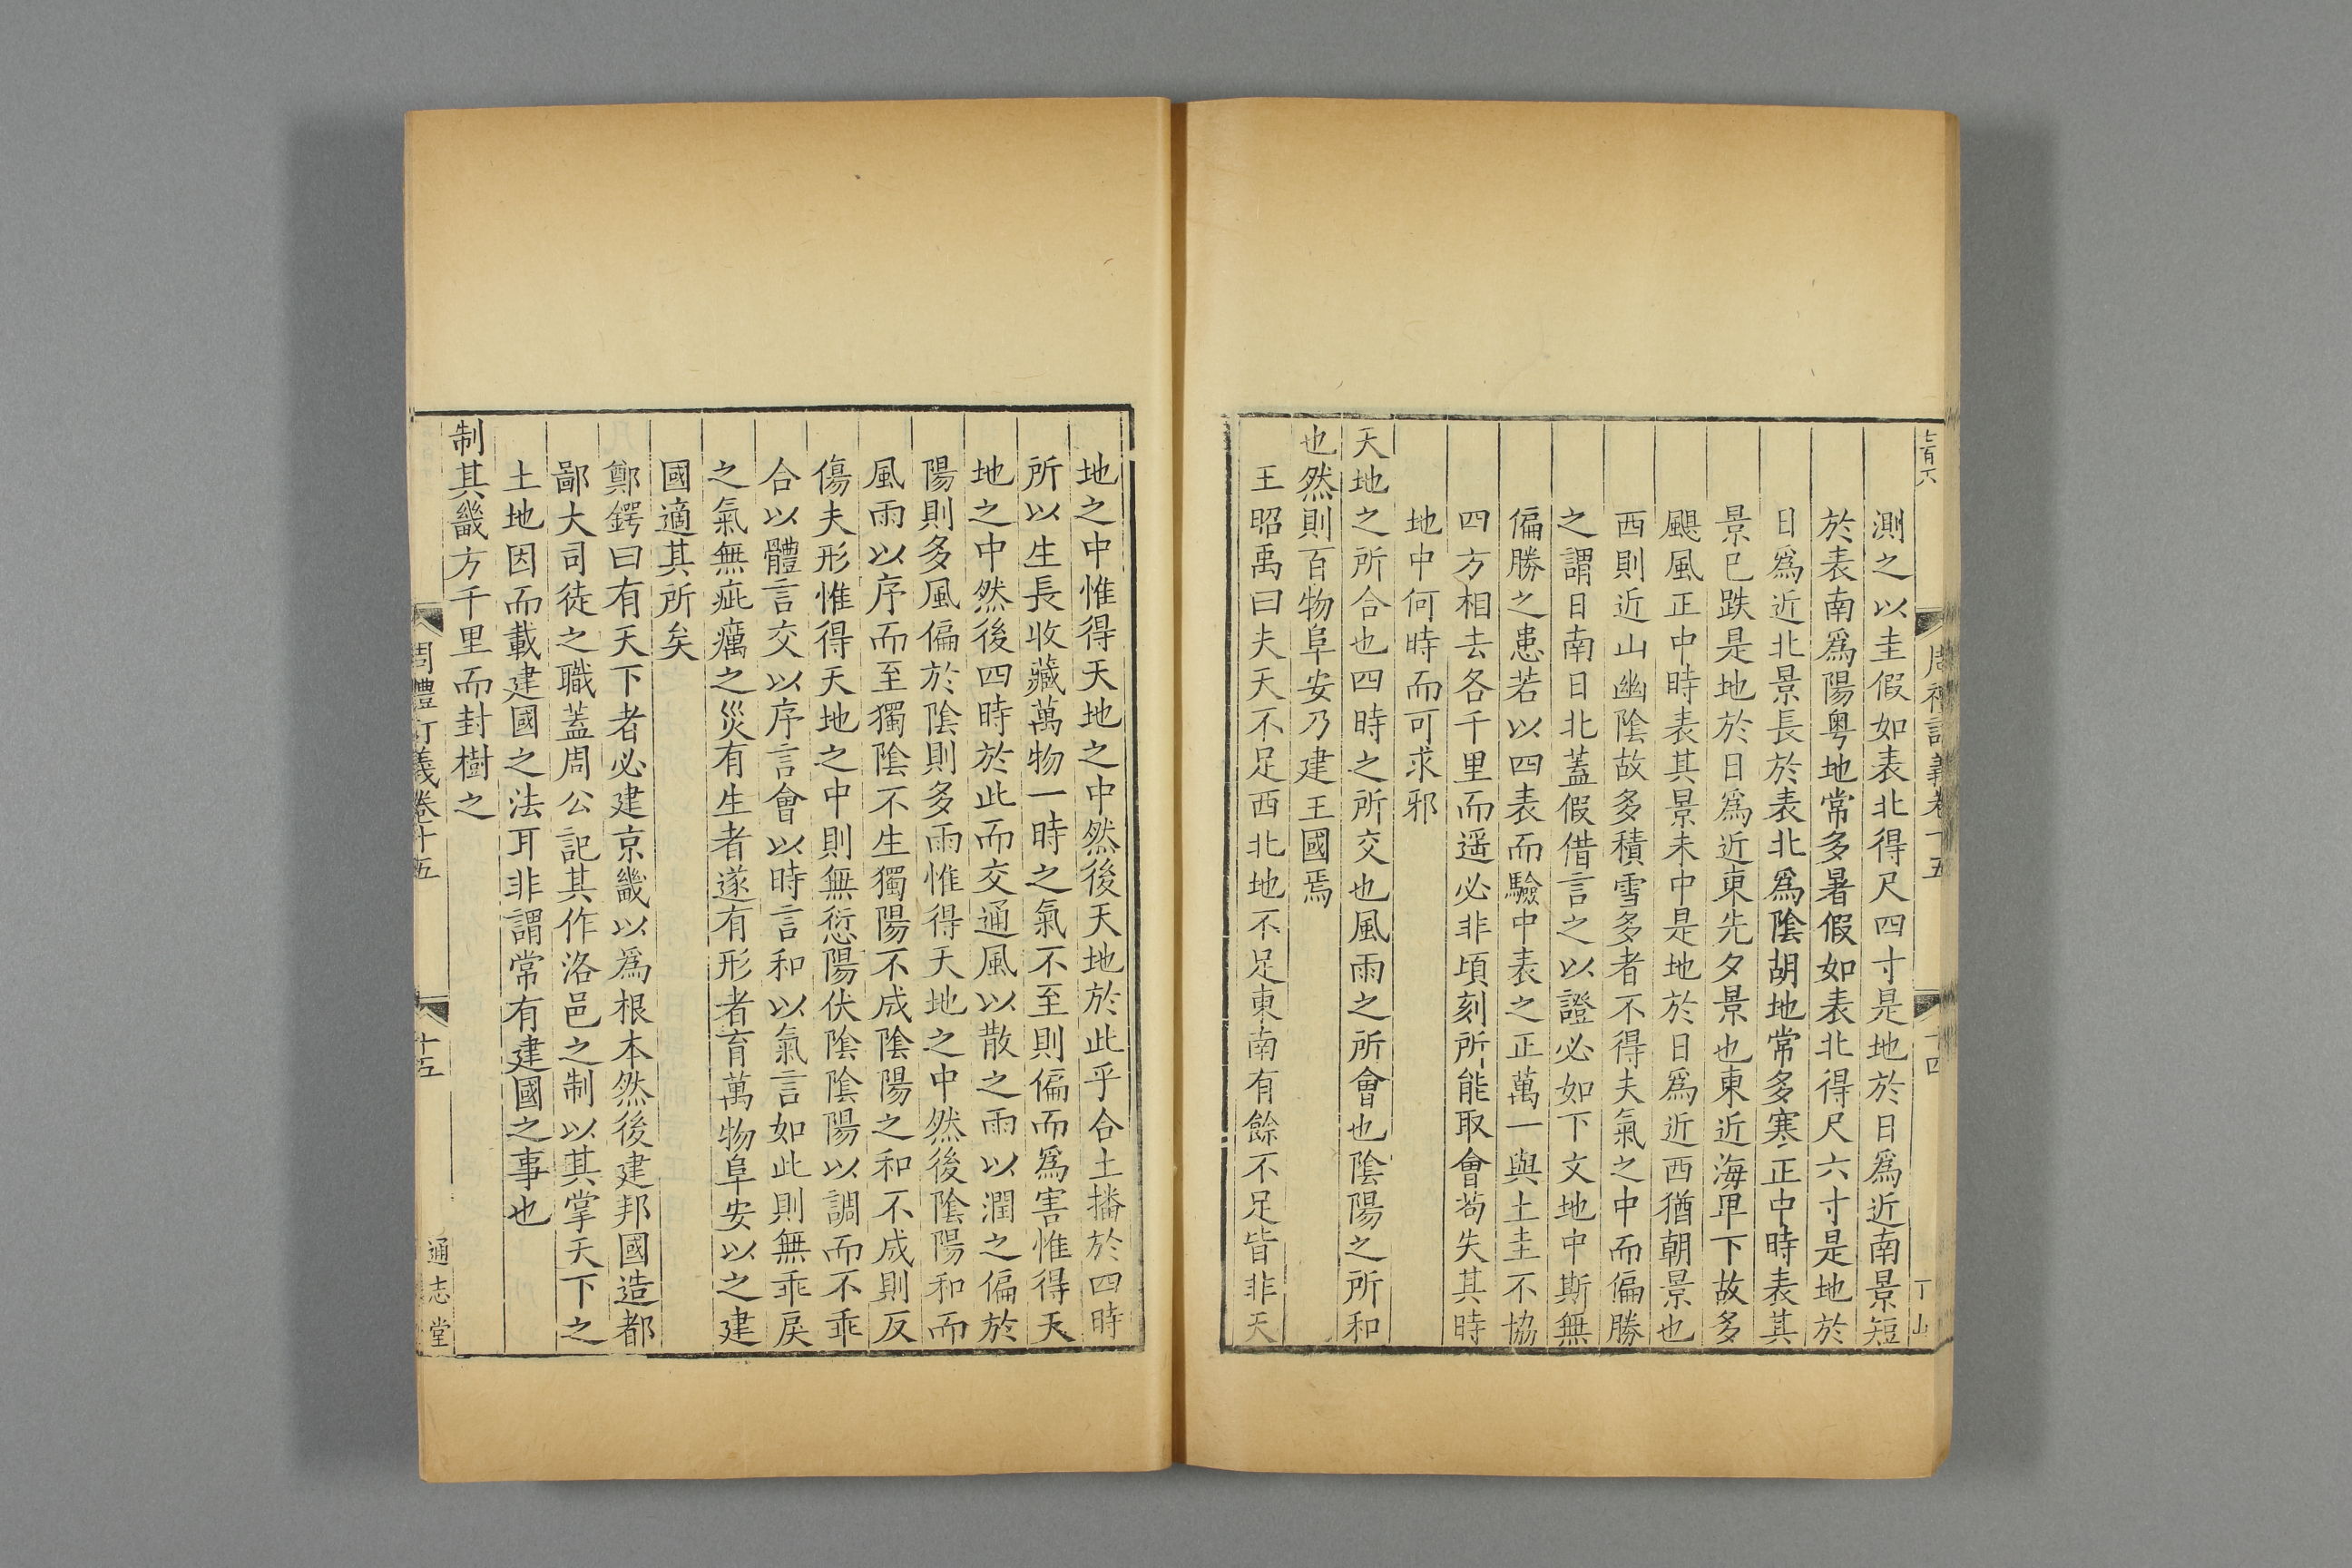 周禮訂義卷十五
十四
測之以圭假如表北得尺四寸是地於日爲近南景短
於表南爲陽粤地常多暑假如表北得尺六寸是地於
日爲近北景長於表北爲陰胡地常多寒正中時表其
景巳跌是地於日爲近東先夕景也東近海卑下故多
颶風正中時表其景未中是地於日爲近西猶朝景也
西則近山幽陰故多積雪多者不得夫氣之中而偏勝
之謂日南日北蓋假借言之以證必如下文地中斯無
偏勝之患若以四表而驗中表之正萬一與土圭不協
四方相去各千里而遥必非頃刻所能取會茍失其時
地中何時而可求邪
天地之所合也四時之所交也風雨之所會也陰陽之所和
也然則百物阜安乃建王國焉
王昭禹曰夫天不足西北地不足東南有餘不足皆非天
地之中惟得天地之中然後天地於此乎合土播於四時
所以生長收藏萬物一時之氣不至則偏而爲害惟得天
地之中然後四時於此而交通風以散之雨以潤之偏於
陽則多風偏於陰則多雨惟得天地之中然後陰陽和而
風雨以序而至獨陰不生獨陽不成陰陽之和不成則反
傷夫形惟得天地之中則無愆陽伏陰陰陽以調而不乖
合以體言交以序言會以時言和以氣言如此則無乖戾
之氣無疵癘之災有生者遂有形者育萬物阜安以之建
國適其所矣
鄭鍔曰有天下者必建京畿以爲根本然後建邦國造都
鄙大司徒之職蓋周公記其作洛邑之制以其掌天下之
土地因而載建國之法耳非謂常有建國之事也
制其畿方千里而封樹之
周禮訂義卷十五
十五
通志堂